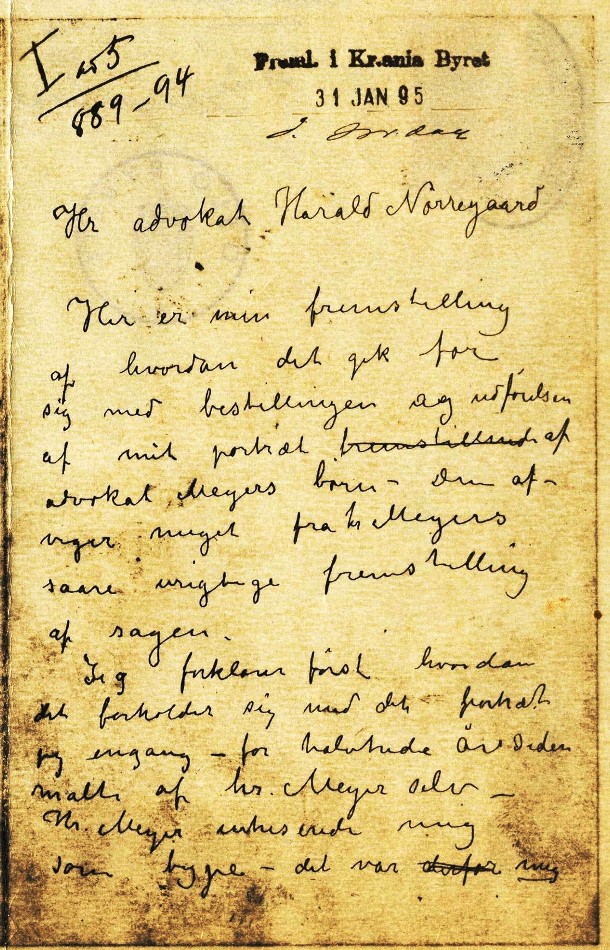 I av 5
889-94
Freml. i Kr.ania Byret
31 JAN 95
Hr advokat Harald Nörregaard
Her er min fremstilling
af hvordan det gik for
sig med bestillingen og udförelsen
af mit porträt fremstillende af
advokat Meyers börn – Den af-
viger meget fra hr Meyers
saare urigtige fremstilling
af sagen.
Jeg forklarer först hvordan
det forholder sig med det porträt
jeg engang – for halvtredie år siden
malte af hr. Meyer selv –
Hr. Meyer interesserede mig
som type – det var derfor mig